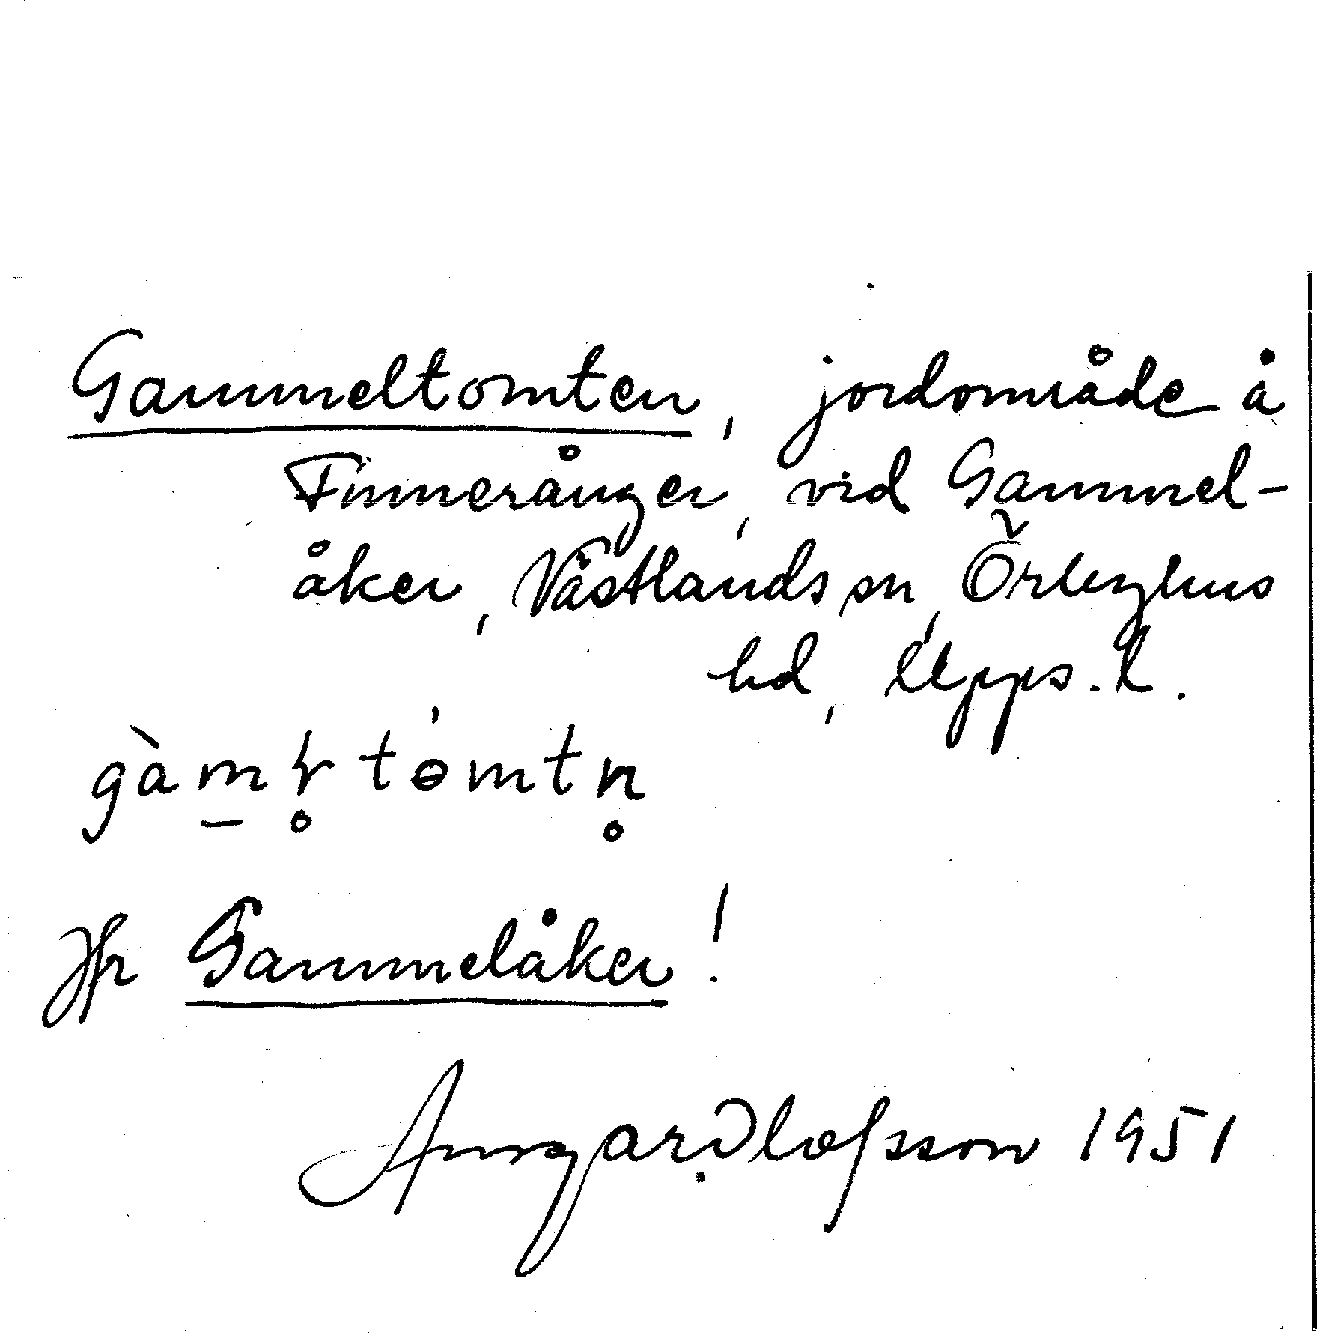 Gammeltomten, jordområde å
Finnerånger, vid Gammel-
åker, Västlands sn, Örbyhus
hd, Upps. l.
Jfr Gammelåker!
Olofsson 1951